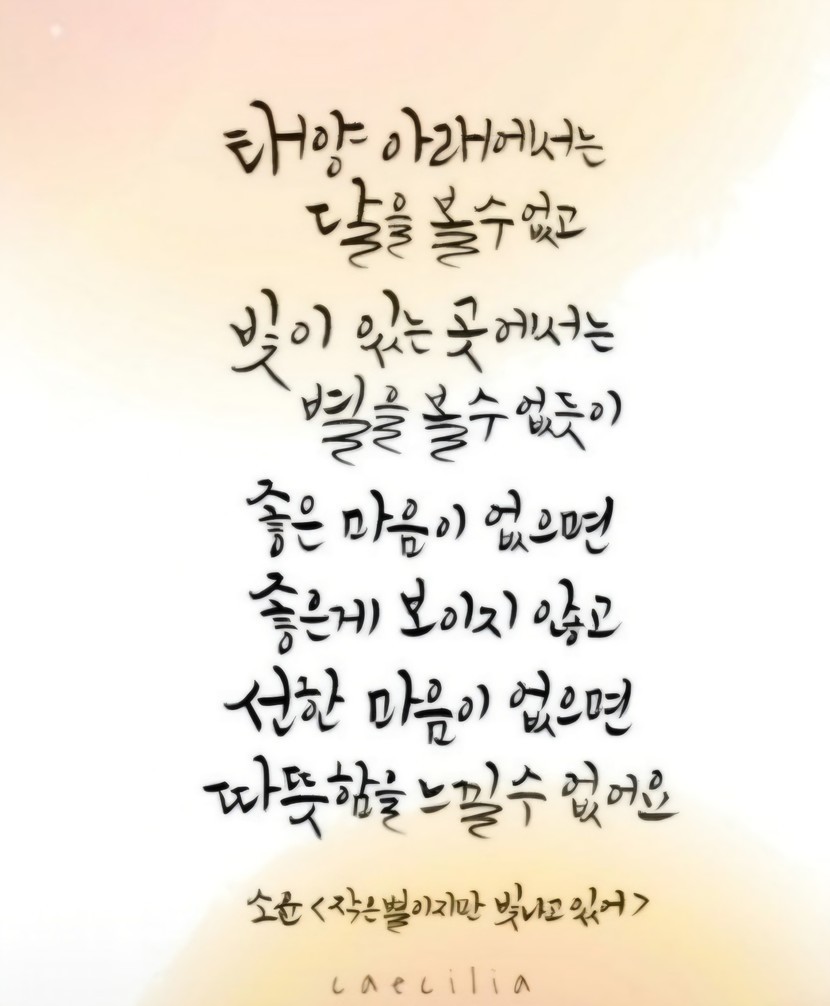 태양 아래에서는
달을 볼 수 없고
빛이 있는 곳에서는
별을 볼 수 없듯이
좋은 마음이 없으면
좋은게 보이지 않고
선한 마음이 없으면
따뜻함을 느낄 수 없어요
소윤 <작은 별이지만 빛나고 있어>
caecilia